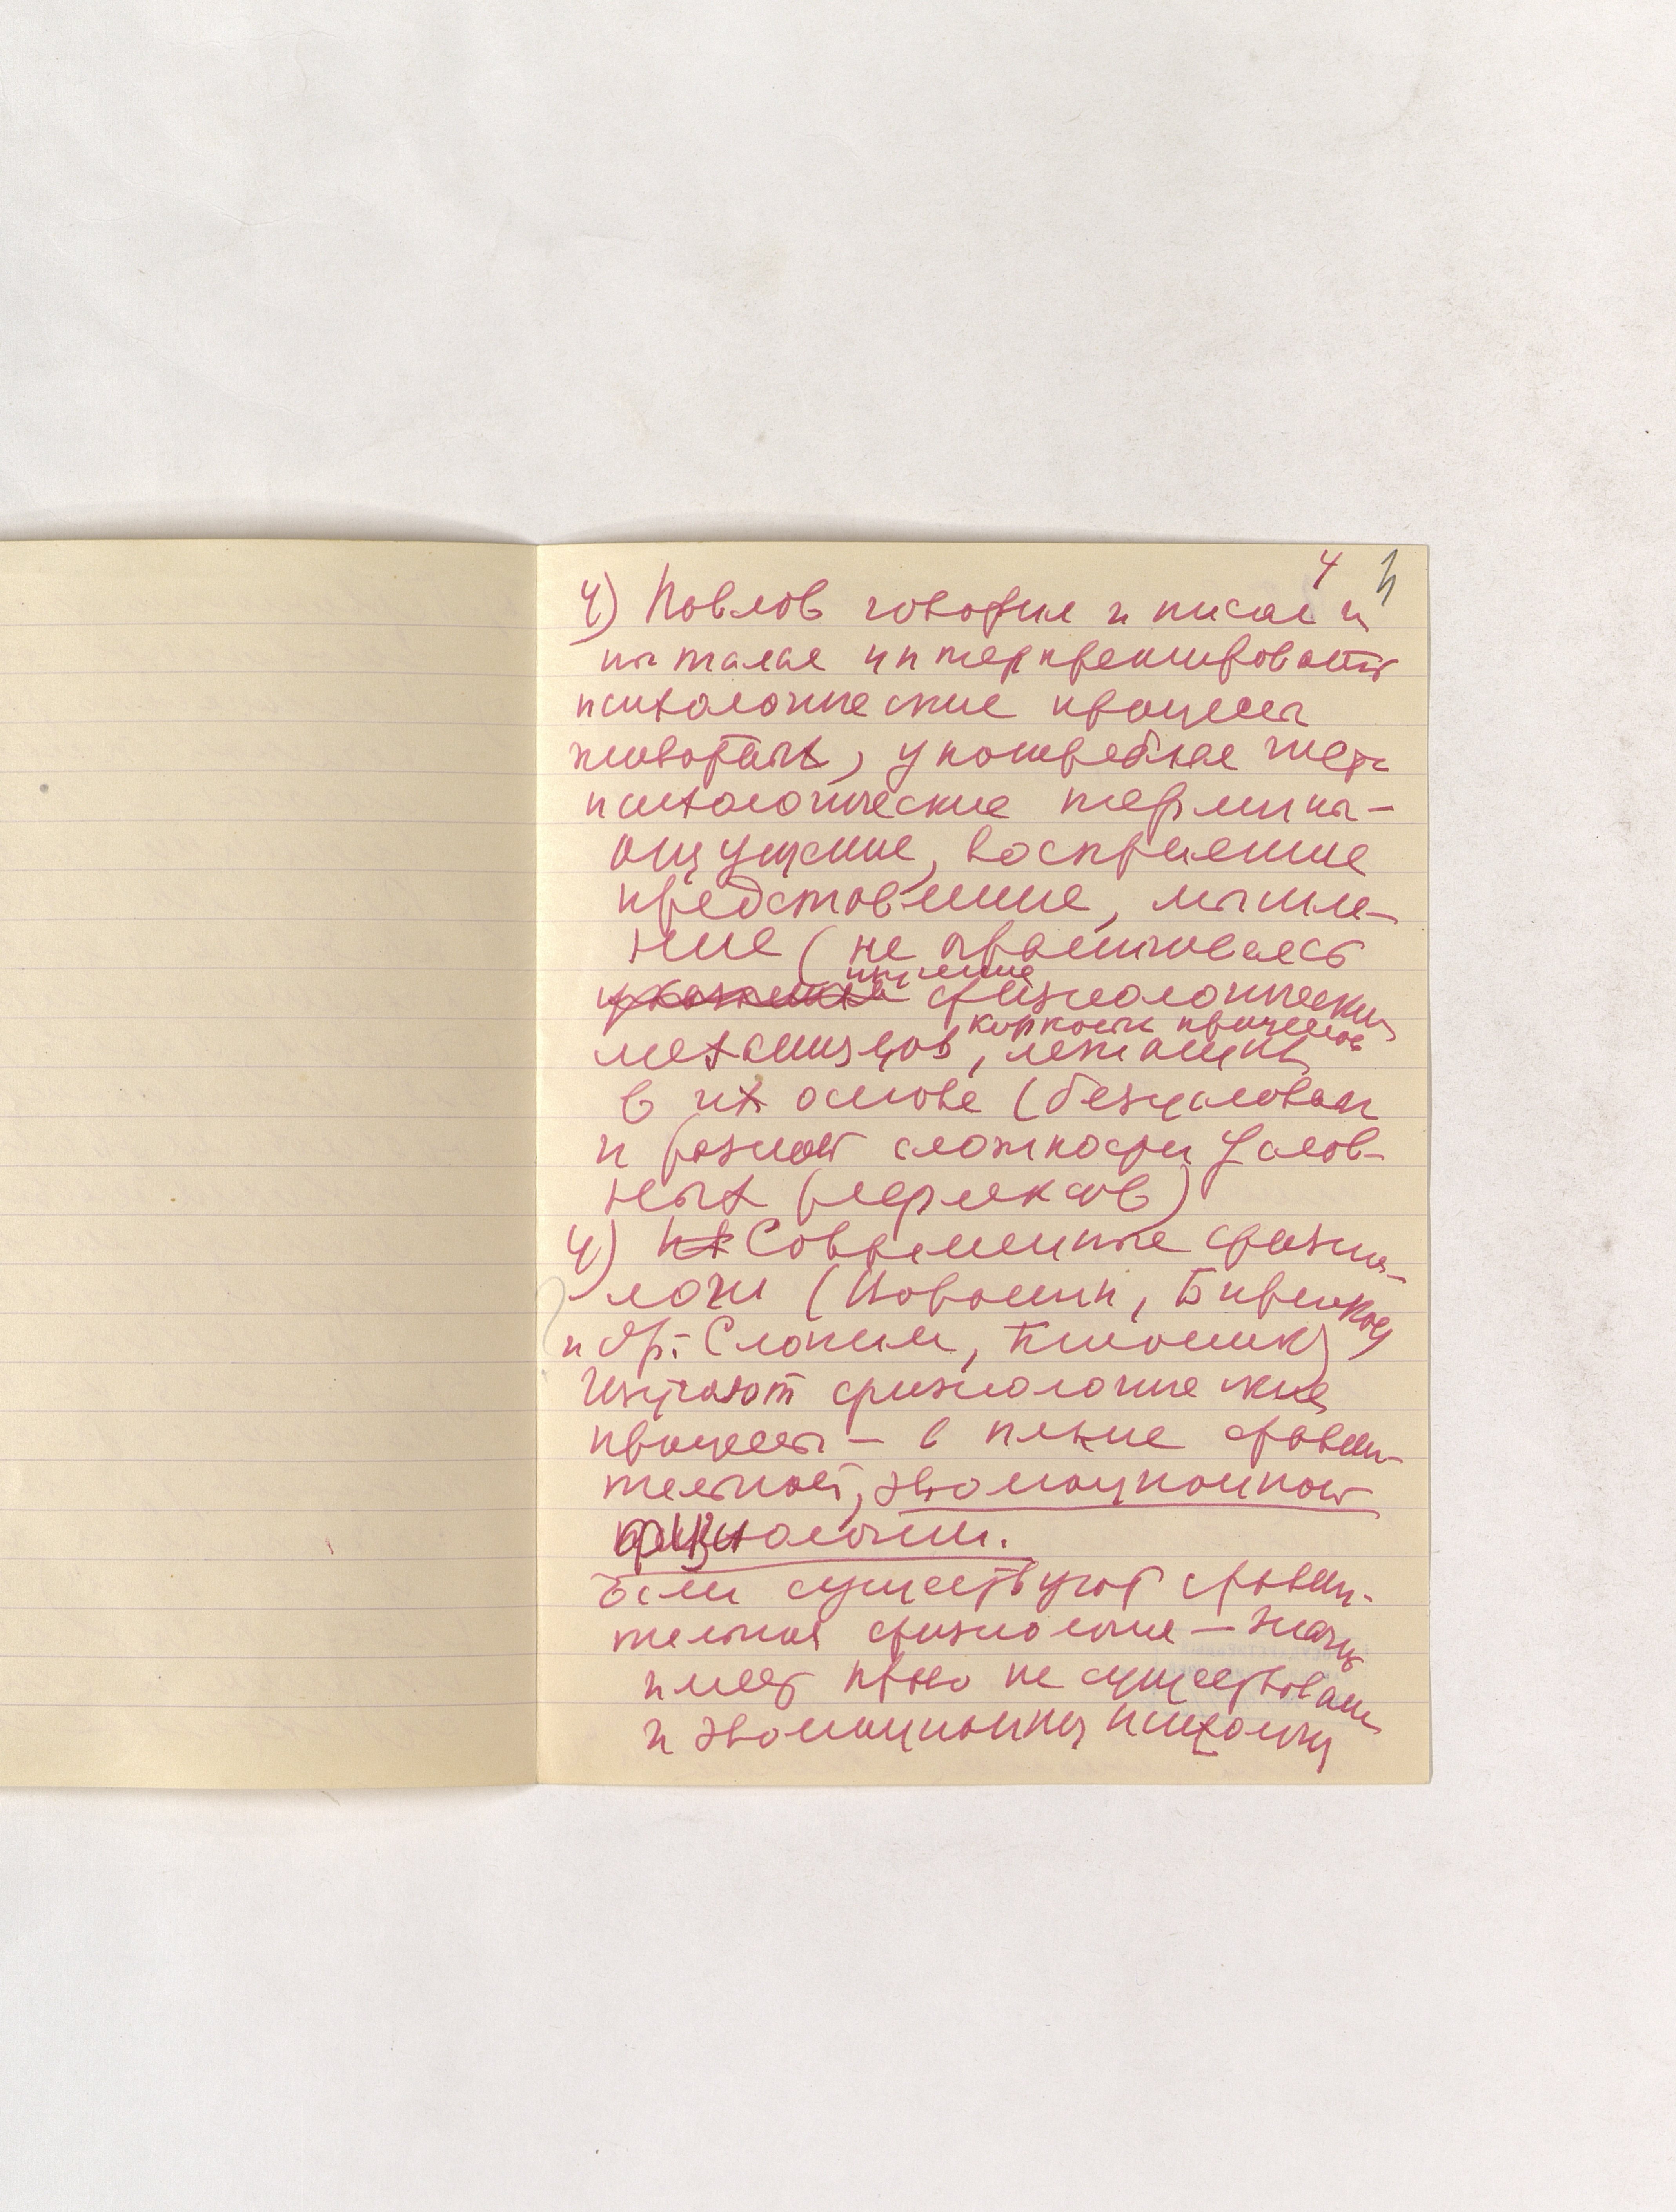 4
4) Павлов говорил и писал и
пытался интерпретировать
психологические процессы
животных, употребляя
психологические термины –
ощущение, восприятие
представление, мышле-
ние (не ограничиваясь
изучение
физиологических
корковых процессов
механизмов, лежащих
в их основе (безусловн
и разной сложности услов-
ных рефлексов)
4) Современные физио-
логи (Воронин, Бирюков
и др. Слоним,
Изучают физиологические
процессы – в плане сравни-
тельной, эволюционной
физиологии.
Если существует сравни-
тельная физиология – значит
имеет право на существовани
и эволюционная психология